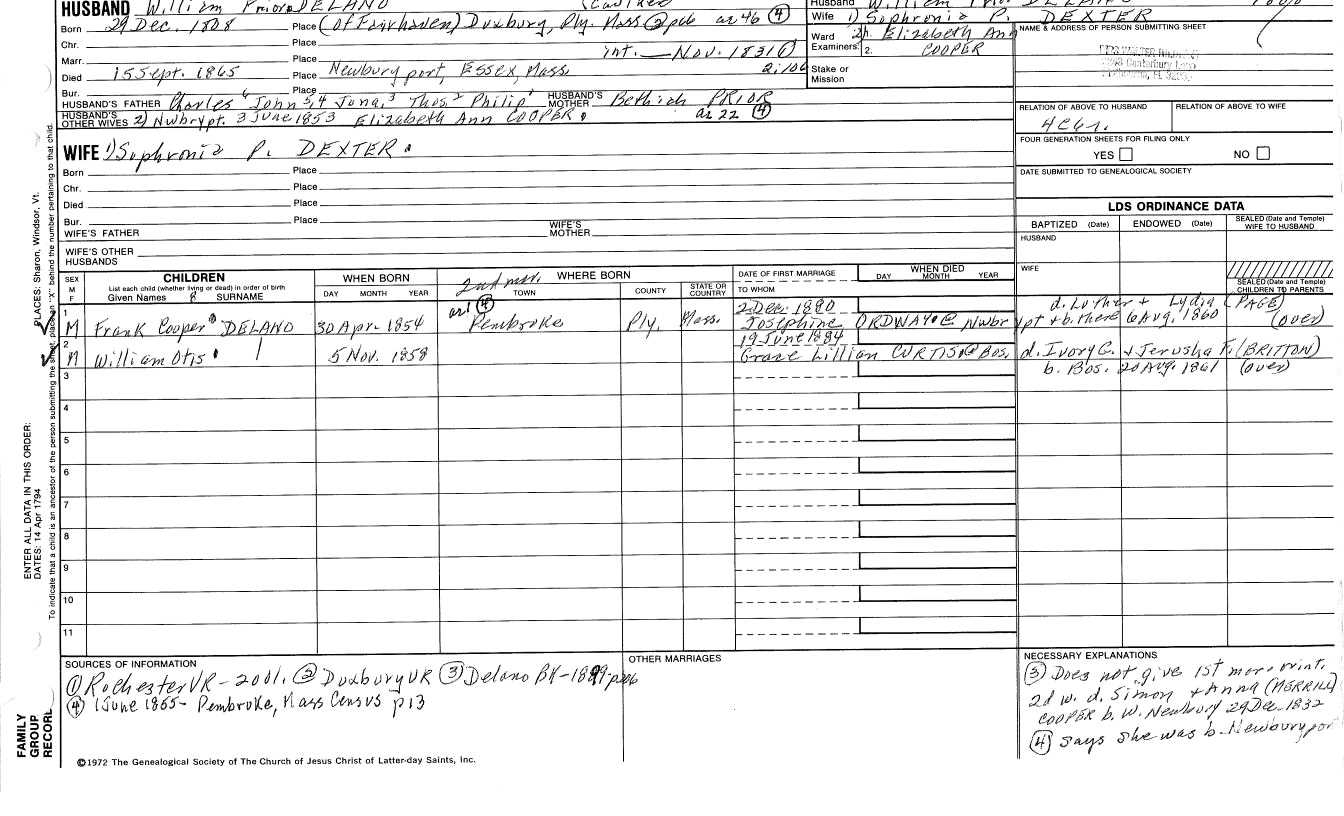 HUSBAND William Prior DELANO
Husband William
Wife 1) Sophronia P. DEXTER
Born 29 Dec. 1808 Place (of Fairhaven) Duxbury, Ply. Mass ② p66 ae 46 ④
Ward 2) Elizabeth Ann
Examiners: 2. COOPER
NAME & ADDRESS OF PERSON SUBMITTING SHEET
Chr. Place
Marr. Place int. Nov. 1831 ①
2:106
Died 15 Sept. 1865 Place Newburyport, Essex, Mass.
Stake or
Mission
Bur. Place
HUSBAND'S FATHER Charles 6 John 5,4 Jona. 3 Thos. 2 Philip 1 HUSBAND'S MOTHER Bethiah PRIOR
HUSBAND'S OTHER WIVES 2) Nwbrypt. 3 June 1853 Elizabeth Ann COOPER. ae 22 ④
RELATION OF ABOVE TO HUSBAND RELATION OF ABOVE TO WIFE
FOUR GENERATION SHEETS FOR FILING ONLY
YES NO
DATE SUBMITTED TO GENEALOGICAL SOCIETY
WIFE 1) Sophronia P. DEXTER.
Born Place
Chr. Place
Died Place
Bur. Place
WIFE'S FATHER WIFE'S MOTHER
WIFE'S OTHER HUSBANDS
LDS ORDINANCE DATA
BAPTIZED (Date) ENDOWED (Date) SEALED (Date and Temple) WIFE TO HUSBAND
HUSBAND
WIFE
SEALED (Date and Temple) CHILDREN TO PARENTS
SEX M F
CHILDREN
List each child (whether living or dead) in order of birth
Given Names SURNAME
WHEN BORN
DAY MONTH YEAR
2nd mr. WHERE BORN
TOWN COUNTY STATE OR COUNTRY
DATE OF FIRST MARRIAGE
TO WHOM
WHEN DIED
DAY MONTH YEAR
1 M Frank Cooper 8 DELANO 30 Apr. 1854 Pembroke Ply. Mass. 2 Dec. 1880
Josephine ORDWAY @ Nwbrypt + b. there 6 Aug. 1860 (over)
d. Luther + Lydia (PAGE)
2 M William Otis 5 Nov. 1858 19 June 1884
Grace Lillian CURTIS @ Bos. d. Ivory G. + Jerusha F. (BRITTON)
b. Bos. 20 Aug. 1861 (over)
3
4
5
6
7
8
9
10
11
SOURCES OF INFORMATION
① Rochester VR - 2001. ② Duxbury VR ③ Delano BK-1899
④ 1 June 1865 - Pembroke, Mass Census p13
OTHER MARRIAGES
NECESSARY EXPLANATIONS
③ Does not give 1st mr. or int.
2d w. d. Simon + Anna (MERRILL)
COOPER b. W. Newbury 29 Dec. 1832
④ says she was b. Newburypor
©1972 The Genealogical Society of The Church of Jesus Christ of Latter-day Saints, Inc.
FAMILY
GROUP
RECORD
ENTER ALL DATA IN THIS ORDER:
DATES: 14 Apr 1794
PLACES: Sharon, Windsor, Vt.
To indicate that a child is an ancestor of the person submitting the sheet, place an "X" behind the number pertaining to that child.